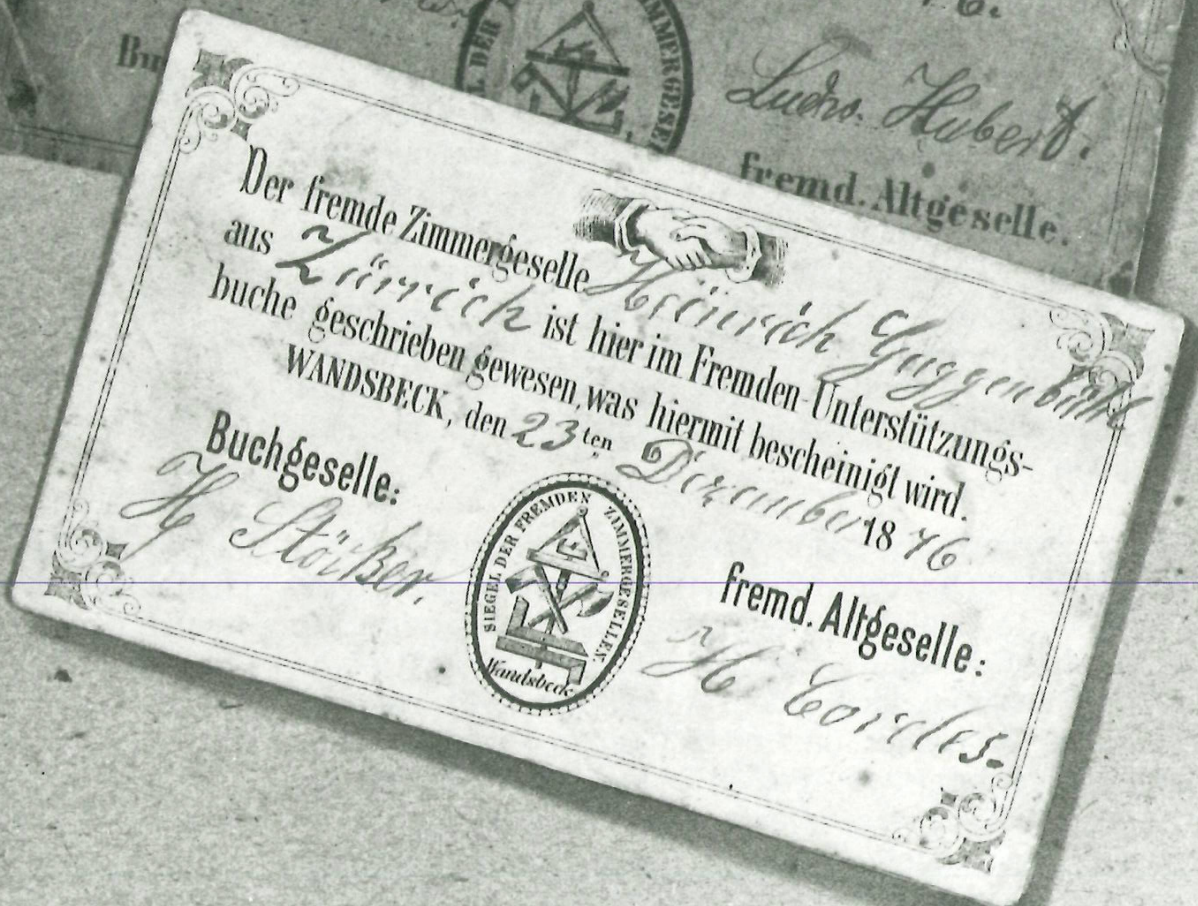 Ludw. Hubert.
fremd. Altgeselle.
Der fremde Zimmergeselle Heinrich Guggenbühl
aus Zürrich ist hier im Fremden-Unterstützungs-
buche geschrieben gewesen, was hiermit bescheinigt wird.
WANDSBECK, den 23ten Dezember 1876
Buchgeselle:
H Störker.
SIEGEL DER FREMDEN ZIMMERGESELLEN.
Wandsbeck
fremd. Altgeselle:
H Cordes.